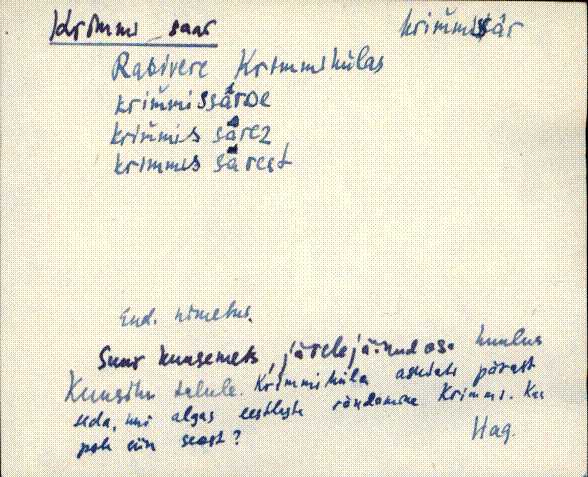 Krimmi_saar krim̆missār
Rabivere Krimmikülas
krim̆missārɒe
krim̆mis sārez
krimmis sārest
End. nimetus.
Suur kuusemets, järelejäänud osa kuulus
Kuusiku talule. Krimmiküla asutati pärast
seda, kui algas eestlaste rändamine Krimmi. Kas
pole siin seost?
Hag.